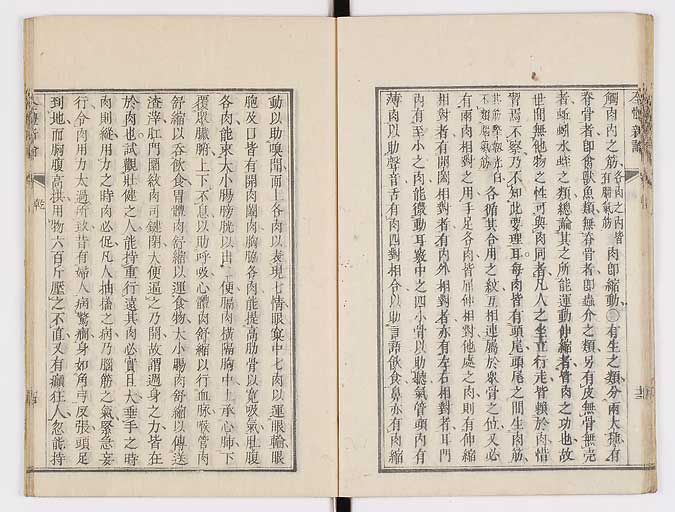 全體新論
觸肉內之筋各肉之內皆有腦氣筋肉卽縮動○有生之類分兩大種有
脊骨者卽禽獸魚類無脊骨者卽蟲介之類另有皮無骨無壳
者蚯蚓水蛭之類總論其之所能運動伸縮者皆肉之功也故
世間無他物之性可與肉同者凡人之坐立行走皆賴於肉惜
習焉不察乃不知此要理耳每肉皆有頭尾頭尾之間生肉筋
其筋堅韌光白不類腦氣筋各循其合用之紋互相連屬於衆骨之位又必
有兩肉相對之用手足各肉皆屈伸相對他處之肉則有伸縮
相對者有開闔相對者有內外相對者亦有左右相對者耳門
內有至小之肉能微動耳竅中之四小骨以助聽氣管頭內有
薄肉以助聲音舌有肉四對相合以助言語飮食鼻亦有肉縮
動以助嗅聞面上各肉以表現七情眼窠中七肉以運眼輪眼
胞及口皆有開肉闔肉胸脇各肉能提高肋骨以寬吸氣肚腹
各肉能束大小腸膀胱以出二便膈肉橫隔胸中上承心肺下
覆衆臟腑上下不息以助呼吸心體肉舒縮以行血脉喉管肉
舒縮以吞飮食胃體肉舒縮以運食物大小腸肉舒縮以傳送
渣滓肛門圍紋肉司鍵閉大便逼之乃開故謂週身之力皆在
於肉也試觀壯健之人能持重行遠其肉必實且大垂手之時
肉則縱用力之時肉必促凡人抽搐之病乃腦筋之氣緊急妄
行令肉用力太過所致昔有婦人病驚癎身如角弓反張頭足
到地而胸腹高拱用物六百斤壓之不直又有癲狂人忽能持
全體新論
乾